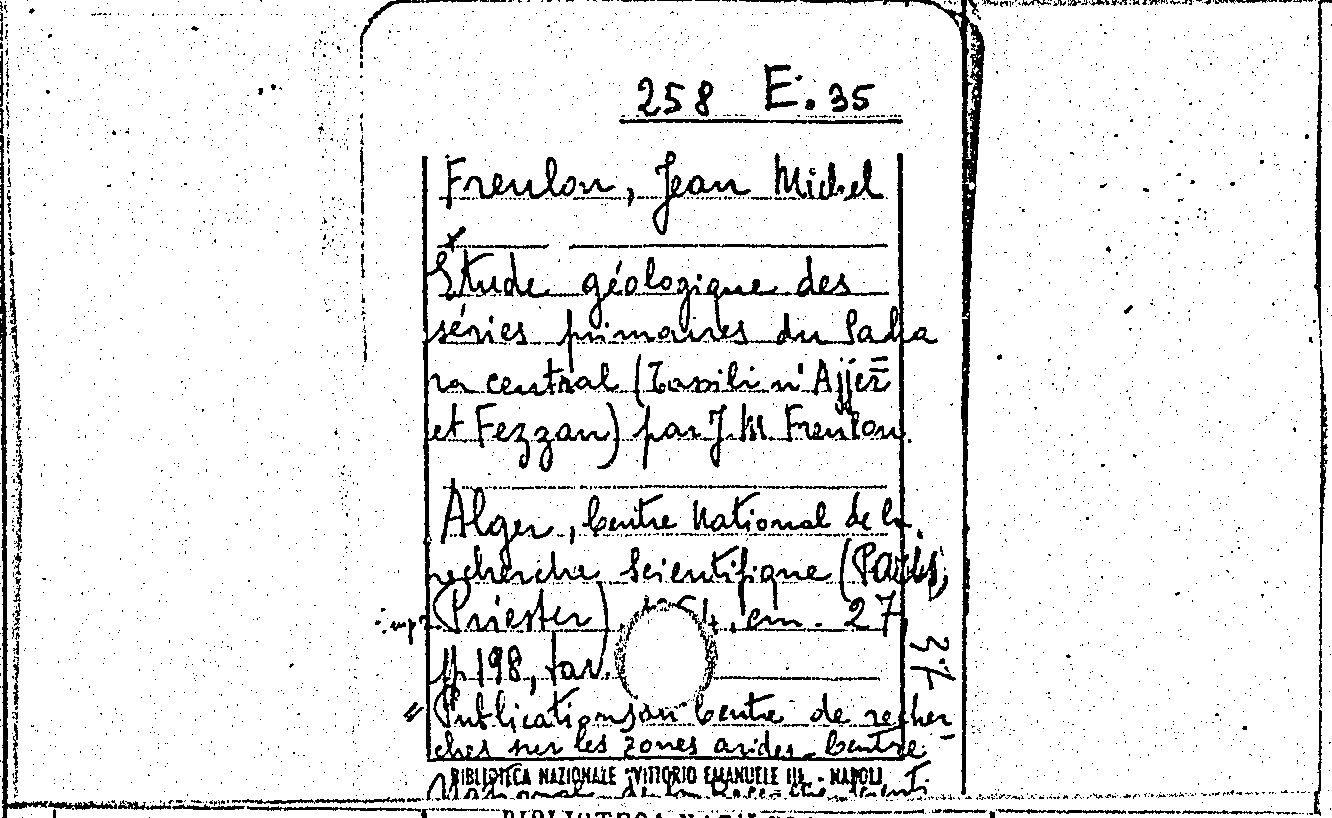 258 E. 35
Freulon, Jean Michel
Étude géologique des
séries primaires du Saha
ra central (Tassili n'Ajjer
et Fezzan) par J. M. Freulon.
Alger, Centre National de la
recherche scientifique (Paris,
impr. Priester), cm. 27,
pp. 198, tav.
37
" Publications du Centre de recher
ches sur les zones arides - Centre
BIBLIOTECA NAZIONALE "VITTORIO EMANUELE III" - NAPOLI
National de la Recherche scienti